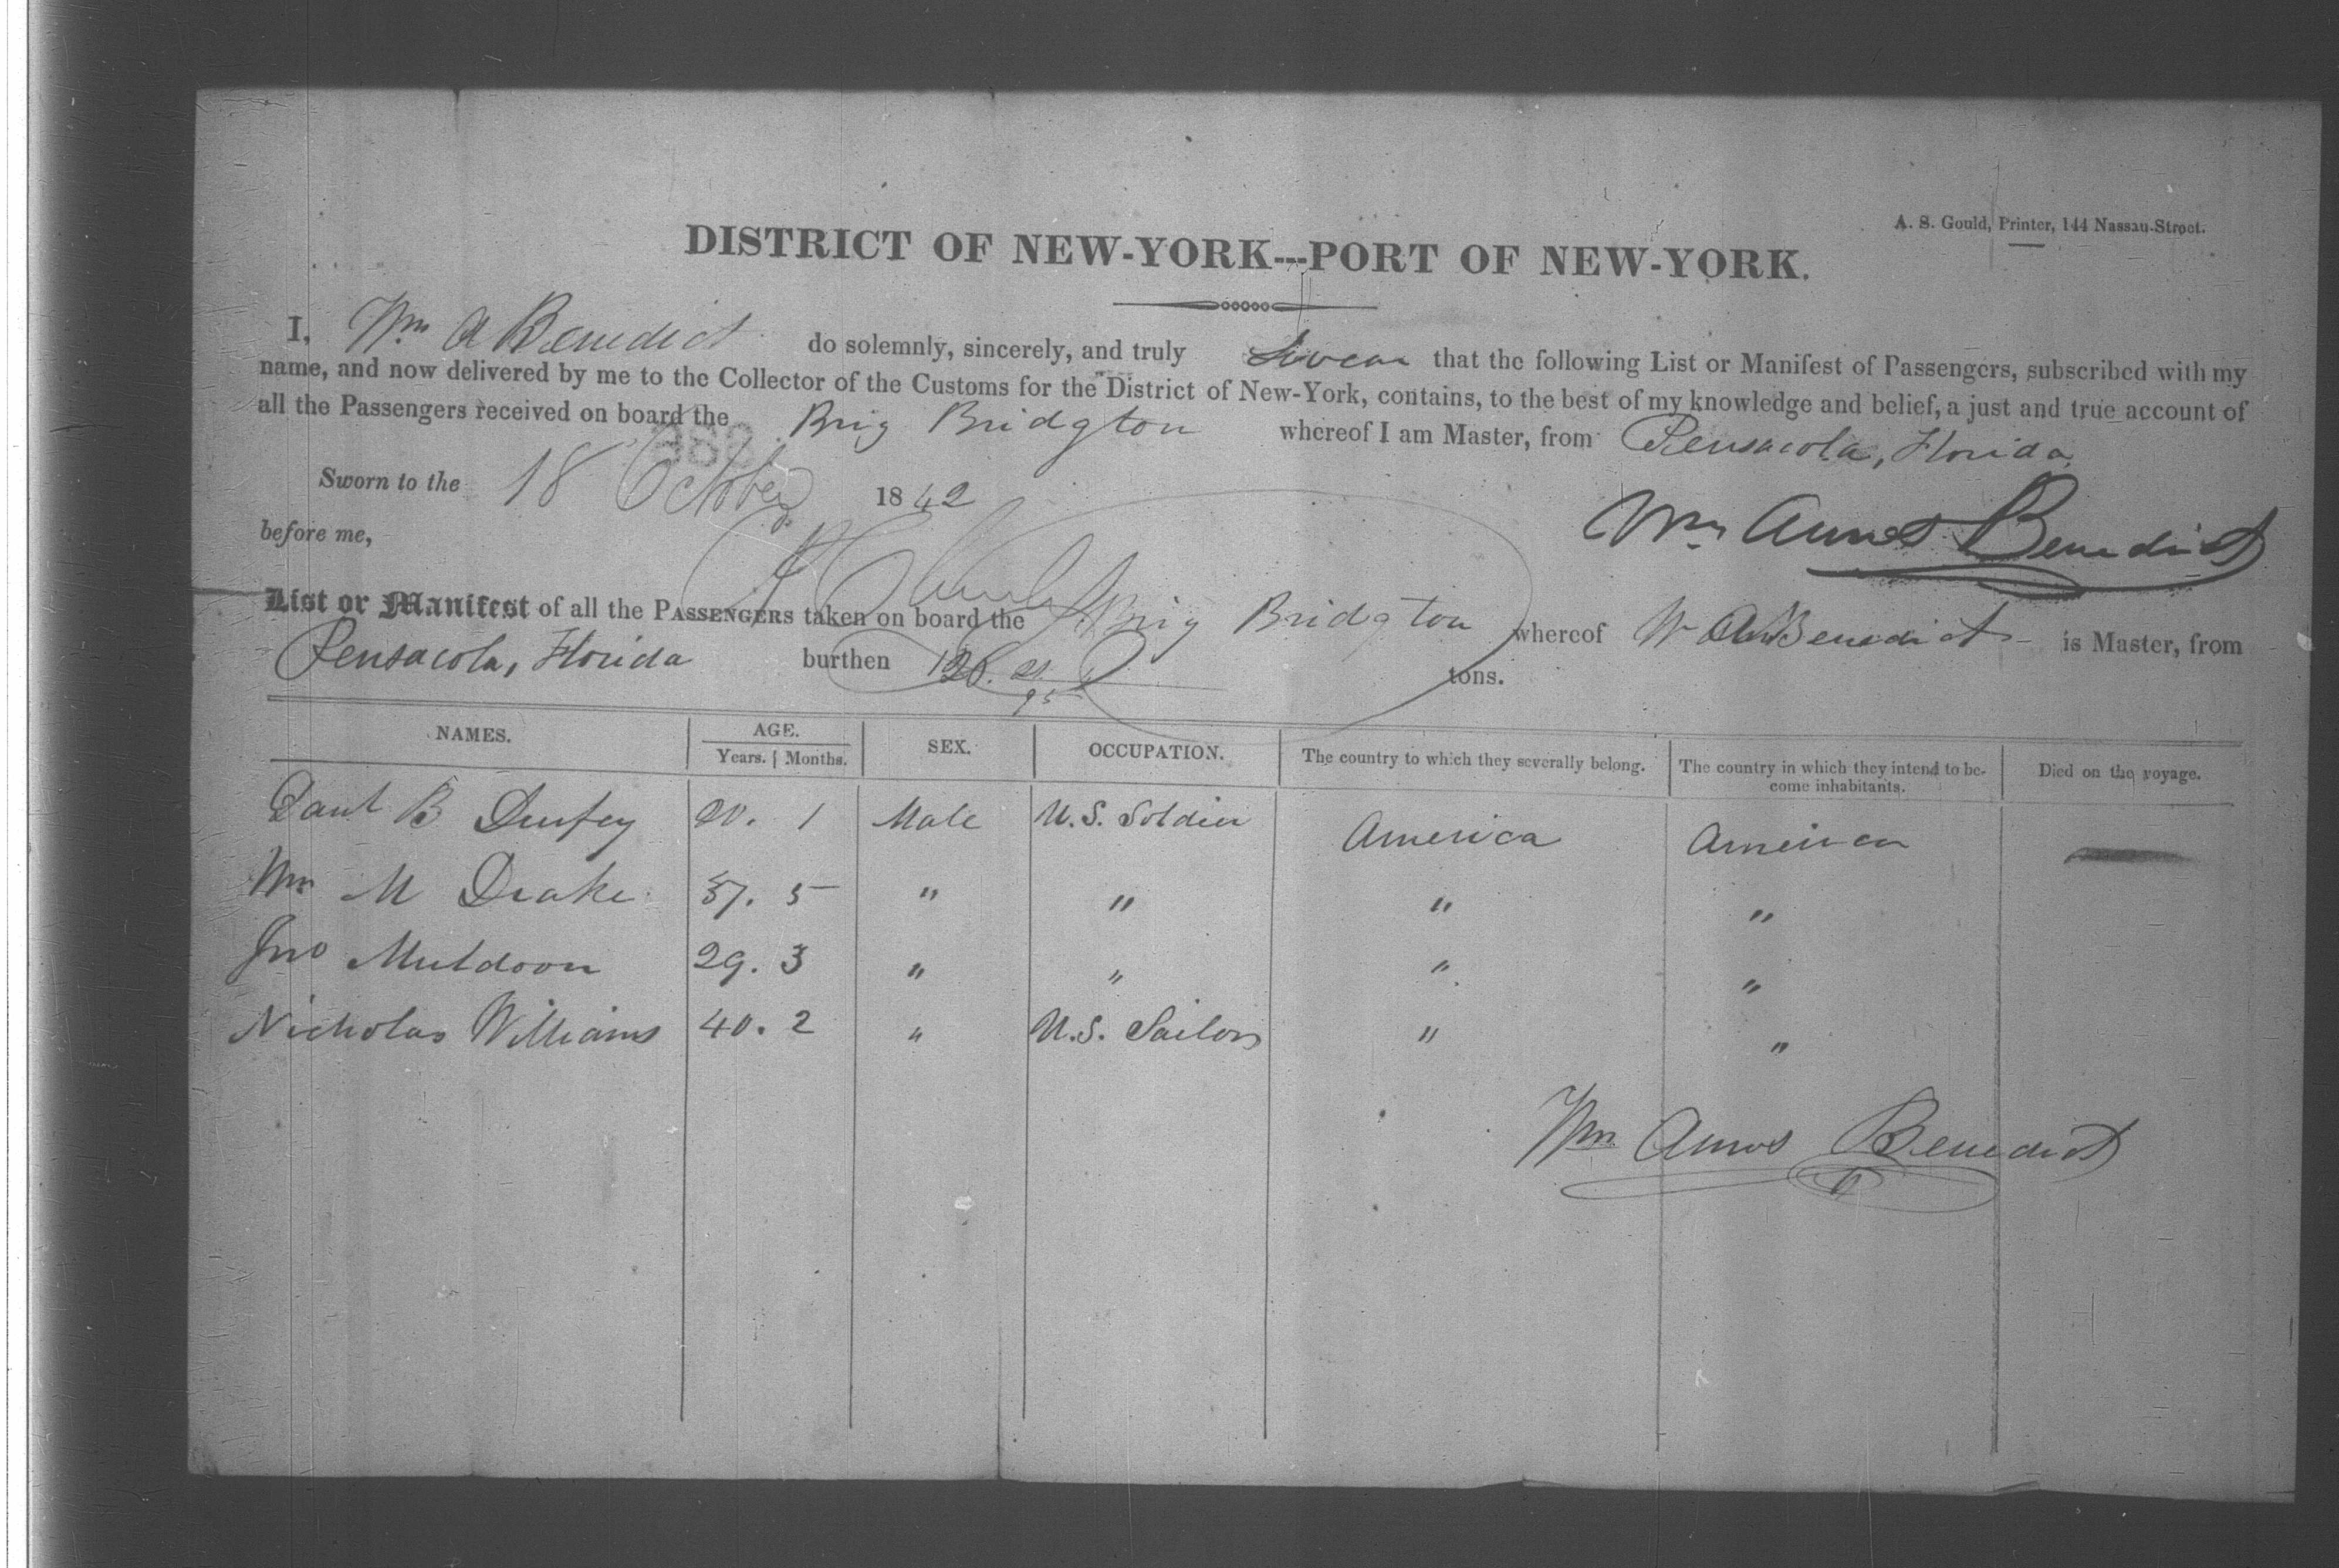 A. S. Gould, Printer, 144 Nassau-Street.
DISTRICT OF NEW-YORK---PORT OF NEW-YORK.
I, Wm A Benedict do solemnly, sincerely, and truly Swear that the following List or Manifest of Passengers, subscribed with my
name, and now delivered by me to the Collector of the Customs for the District of New-York, contains, to the best of my knowledge and belief, a just and true account of
all the Passengers received on board the Brig Bridgton whereof I am Master, from Pensacola, Florida
Sworn to the 18 October 1842
Wm Amos Benedict
before me,
List or Manifest of all the PASSENGERS taken on board the Brig Bridgton whereof W A Benedict is Master, from
Pensacola, Florida burthen tons.
NAMES. AGE. Years. Months. SEX. OCCUPATION. The country to which they severally belong. The country in which they intend to be-come inhabitants. Died on the voyage.
B Durfey 20. 1 Male U.S. Soldier America America
Wm M Drake 37. 5 " " " "
Jno Muldoon 29. 3 " " " "
Nicholas Williams 40. 2 " U.S. Sailor " "
Wm Amos Benedict